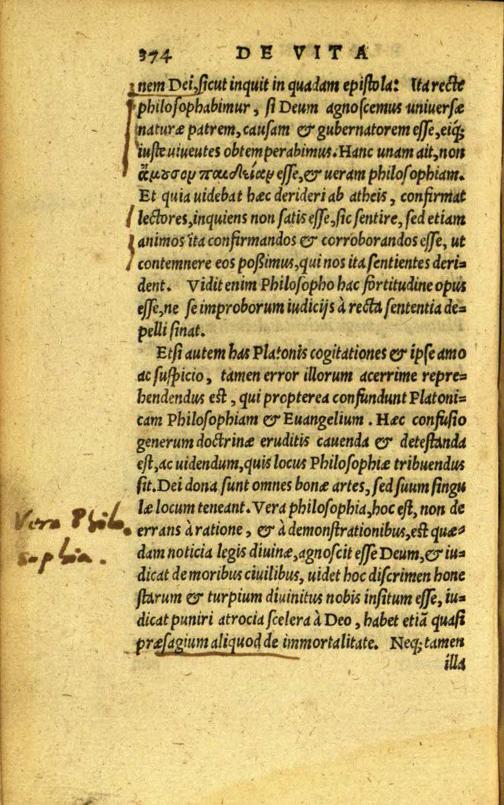 374 DE VITA
nem Dei, sicut inquit in quadam epistola: Ita recte
philosophabimur, si Deum agnoscemus universæ
naturæ patrem, causam & gubernatorem esse, eiq́;
iuste viventes obtemperabimus. Hanc unam ait, non
ἄμουσον παιδείαν esse, & veram philosophiam.
Et quia videbat hæc derideri ab atheis, confirmat
lectores, inquiens non satis esse, sic sentire, sed etiam
animos ita confirmandos & corroborandos esse, ut
contemnere eos possimus, qui nos ita sentientes deri=
dent. Vidit enim Philosopho hac fortitudine opus
esse, ne se improborum iudicijs à recta sententia de=
pelli sinat.
Etsi autem has Platonis cogitationes & ipse amo
ac suspicio, tamen error illorum acerrime repre=
hendendus est, qui propterea confundunt Platoni=
cam Philosophiam & Euangelium. Hæc confusio
generum doctrinæ eruditis cauenda & detestanda
est, ac uidendum, quis locus Philosophiæ tribuendus
sit. Dei dona sunt omnes bonæ artes, sed suum singu
læ locum teneant. Vera philosophia, hoc est, non de
errans à ratione, & à demonstrationibus, est quæ=
dam noticia legis diuinæ, agnoscit esse Deum, & iu=
dicat de moribus ciuilibus, uidet hoc discrimen hone
starum & turpium diuinitus nobis insitum esse, iu=
dicat puniri atrocia scelera à Deo, habet etiã quasi
præsagium aliquod de immortalitate. Neq; tamen
illa
Vera Philo.
sophia.